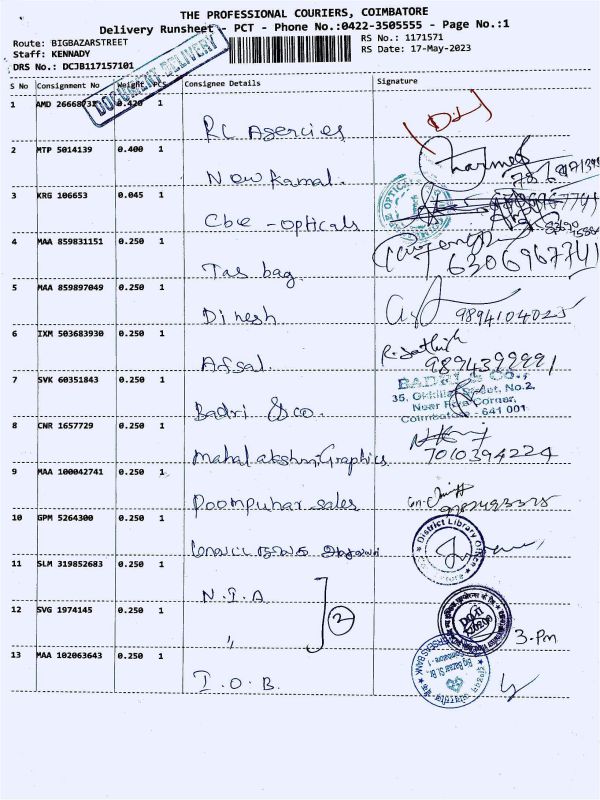 THE PROFESSIONAL COURIERS, COIMBATORE
Delivery Runsheet - PCT - Phone No.:0422-3505555 - Page No.:1
Route: BIGBAZARSTREET
Staff: KENNADY
DRS No.: DCJB117157101
RS No.: 1171571
RS Date: 17-May-2023
DOCUMENT DELIVERY
S No Consignment No Weight PCS Consignee Details Signature
1 AMD 1
RL Agencies
2 MTP 5014139 0.400 1
New Kamal.
3 KRG 106653 0.045 1
Cbe - opticals
4 MAA 859831151 0.250 1
Tas bag.
6306967741
5 MAA 859897049 0.250 1
Dinesh
9894104025
6 IXM 503683930 0.250 1
Afsal.
9894399991
7 SVK 60351843 0.250 1
Badri & co.
BADRI & CO.,
35, Street, No.2,
Near Corner,
Coimbatore - 641 001
8 CNR 1657729 0.250 1
Mahalakshmi Graphics
7010394224
9 MAA 100042741 0.250 1
Poompuhar sales
10 GPM 5264300 0.250 1
District Library Officer
11 SLM 319852683 0.250 1
N.I.A
2
12 SVG 1974145 0.250 1
"
3-Pm
13 MAA 102063643 0.250 1
I.O.B.